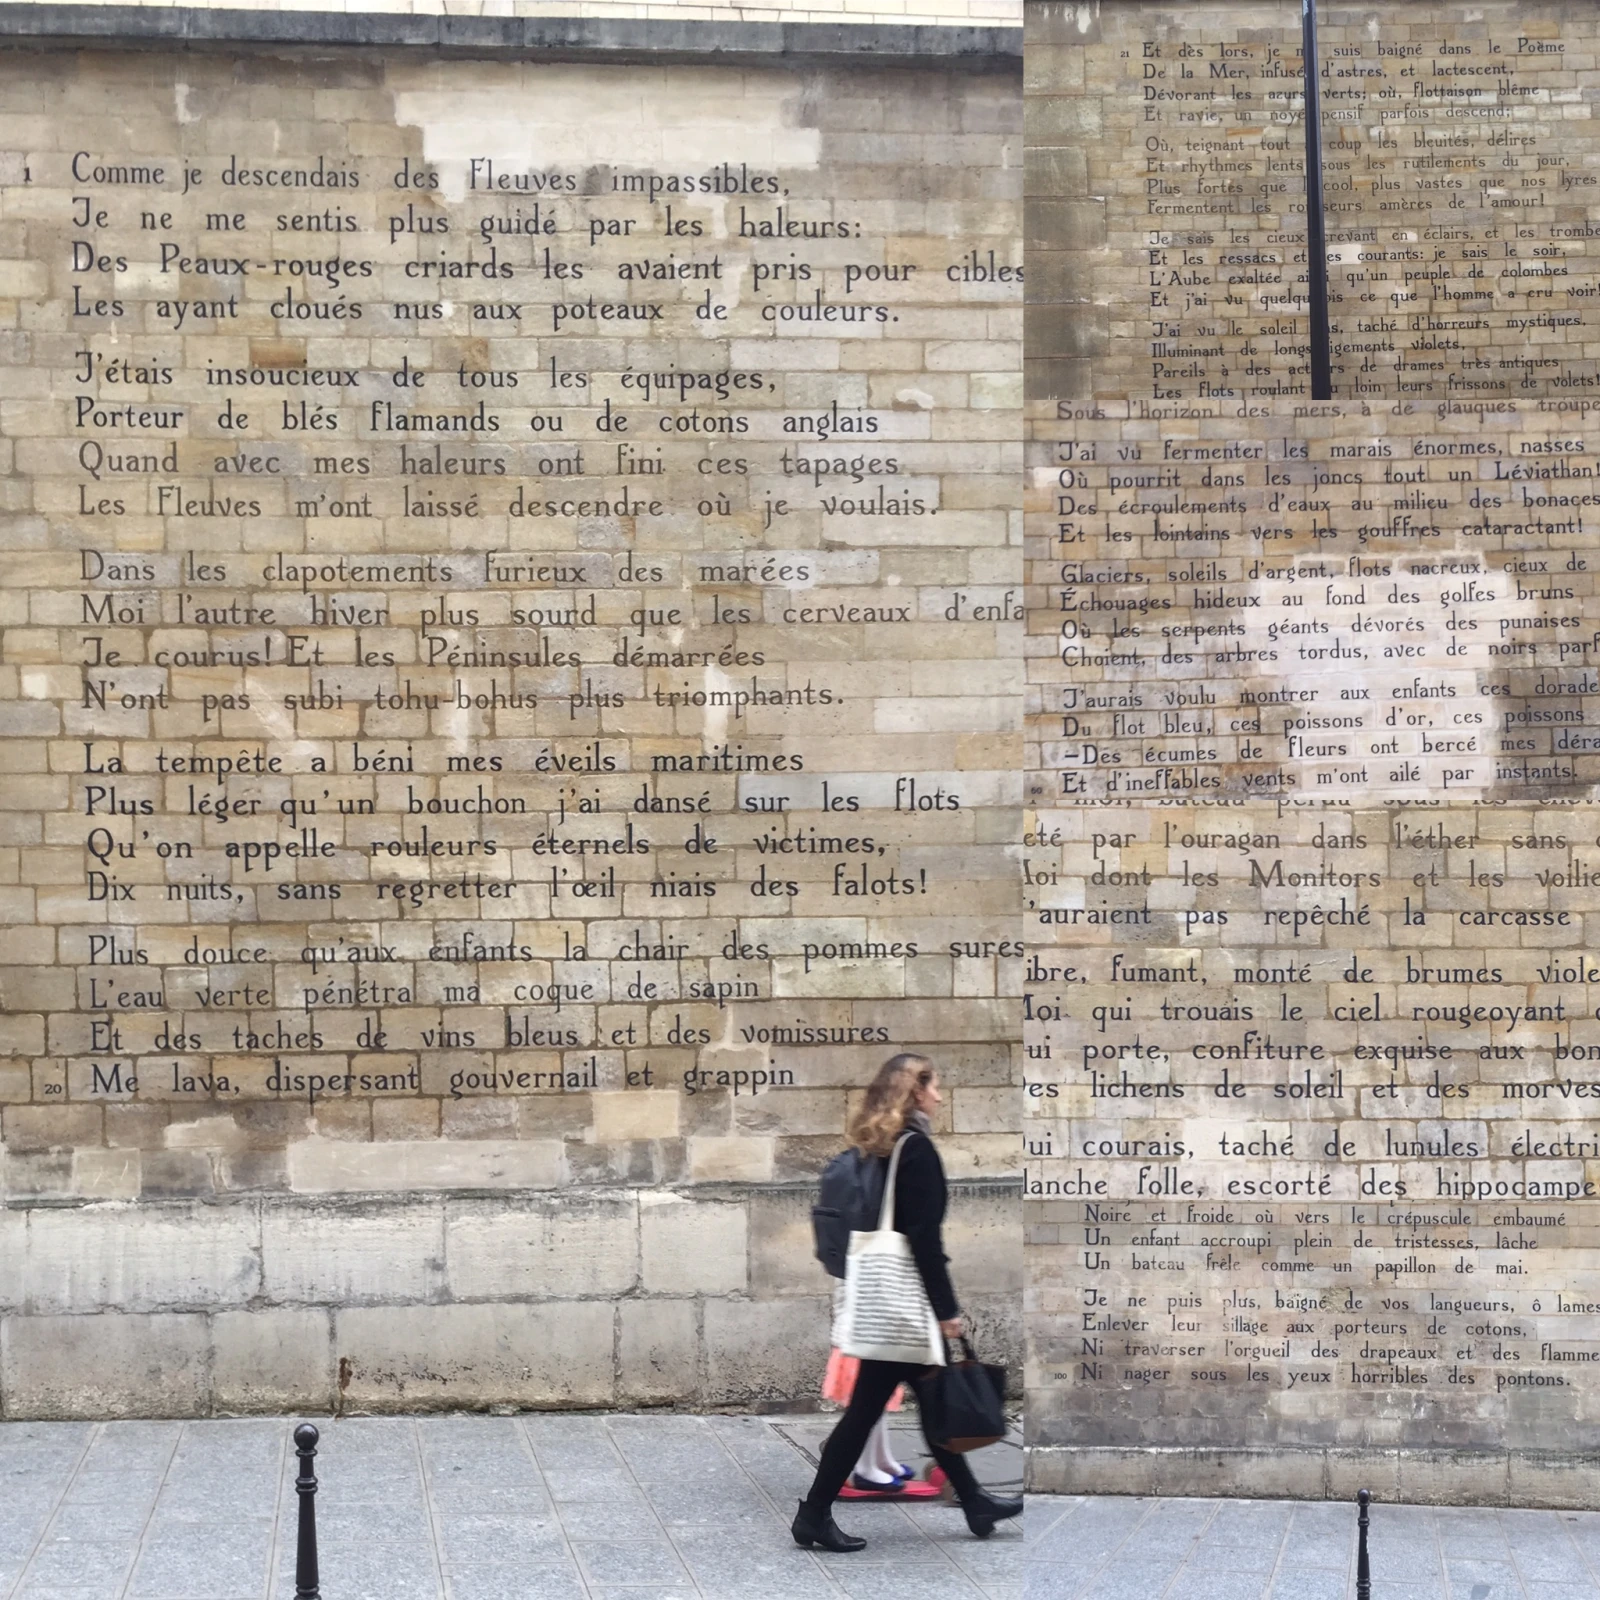 1 Comme je descendais des Fleuves impassibles,
Je ne me sentis plus guidé par les haleurs:
Des Peaux-rouges criards les avaient pris pour cibles
Les ayant cloués nus aux poteaux de couleurs.
J'étais insoucieux de tous les équipages,
Porteur de blés flamands ou de cotons anglais
Quand avec mes haleurs ont fini ces tapages
Les Fleuves m'ont laissé descendre où je voulais.
Dans les clapotements furieux des marées
Moi l'autre hiver plus sourd que les cerveaux d'enfa
Je courus! Et les Péninsules démarrées
N'ont pas subi tohu-bohus plus triomphants.
La tempête a béni mes éveils maritimes
Plus léger qu'un bouchon j'ai dansé sur les flots
Qu'on appelle rouleurs éternels de victimes,
Dix nuits, sans regretter l'œil niais des falots!
Plus douce qu'aux enfants la chair des pommes sures
L'eau verte pénétra ma coque de sapin
Et des taches de vins bleus et des vomissures
20 Me lava, dispersant gouvernail et grappin
21 Et dès lors, je suis baigné dans le Poème
De la Mer, infusé d'astres, et lactescent,
Dévorant les azurs verts; où, flottaison blême
Et ravie, un noyé pensif parfois descend;
Où, teignant tout coup les bleuités, délires
Et rhythmes lents sous les rutilements du jour,
Plus fortes que l cool, plus vastes que nos lyres
Fermentent les ro seurs amères de l'amour!
Je sais les cieux crevant en éclairs, et les trombe
Et les ressacs et les courants: je sais le soir,
L'Aube exaltée ai i qu'un peuple de colombes
Et j'ai vu quelqu is ce que l'homme a cru voir!
J'ai vu le soleil as, taché d'horreurs mystiques,
Illuminant de longs igements violets,
Pareils à des act rs de drames très antiques
Les flots roulant u loin leurs frissons de volets!
Sous l'horizon des mers, à de glauques troupe
J'ai vu fermenter les marais énormes, nasses
Où pourrit dans les joncs tout un Léviathan!
Des écroulements d'eaux au milieu des bonaces
Et les lointains vers les gouffres cataractant!
Glaciers, soleils d'argent, flots nacreux, cieux de
Échouages hideux au fond des golfes bruns
Où les serpents géants dévorés des punaises
Choient, des arbres tordus, avec de noirs parf
J'aurais voulu montrer aux enfants ces dorade
Du flot bleu, ces poissons d'or, ces poissons
—Des écumes de fleurs ont bercé mes déra
60 Et d'ineffables vents m'ont ailé par instants.
moi, bateau perdu sous les cheve
eté par l'ouragan dans l'éther sans
Moi dont les Monitors et les voilie
'auraient pas repêché la carcasse
ibre, fumant, monté de brumes viole
Moi qui trouais le ciel rougeoyant
ui porte, confiture exquise aux bon
es lichens de soleil et des morves
ui courais, taché de lunules électri
lanche folle, escorté des hippocampe
Noire et froide où vers le crépuscule embaumé
Un enfant accroupi plein de tristesses, lâche
Un bateau frêle comme un papillon de mai.
Je ne puis plus, baigné de vos langueurs, ô lames
Enlever leur sillage aux porteurs de cotons,
Ni traverser l'orgueil des drapeaux et des flamme
100 Ni nager sous les yeux horribles des pontons.